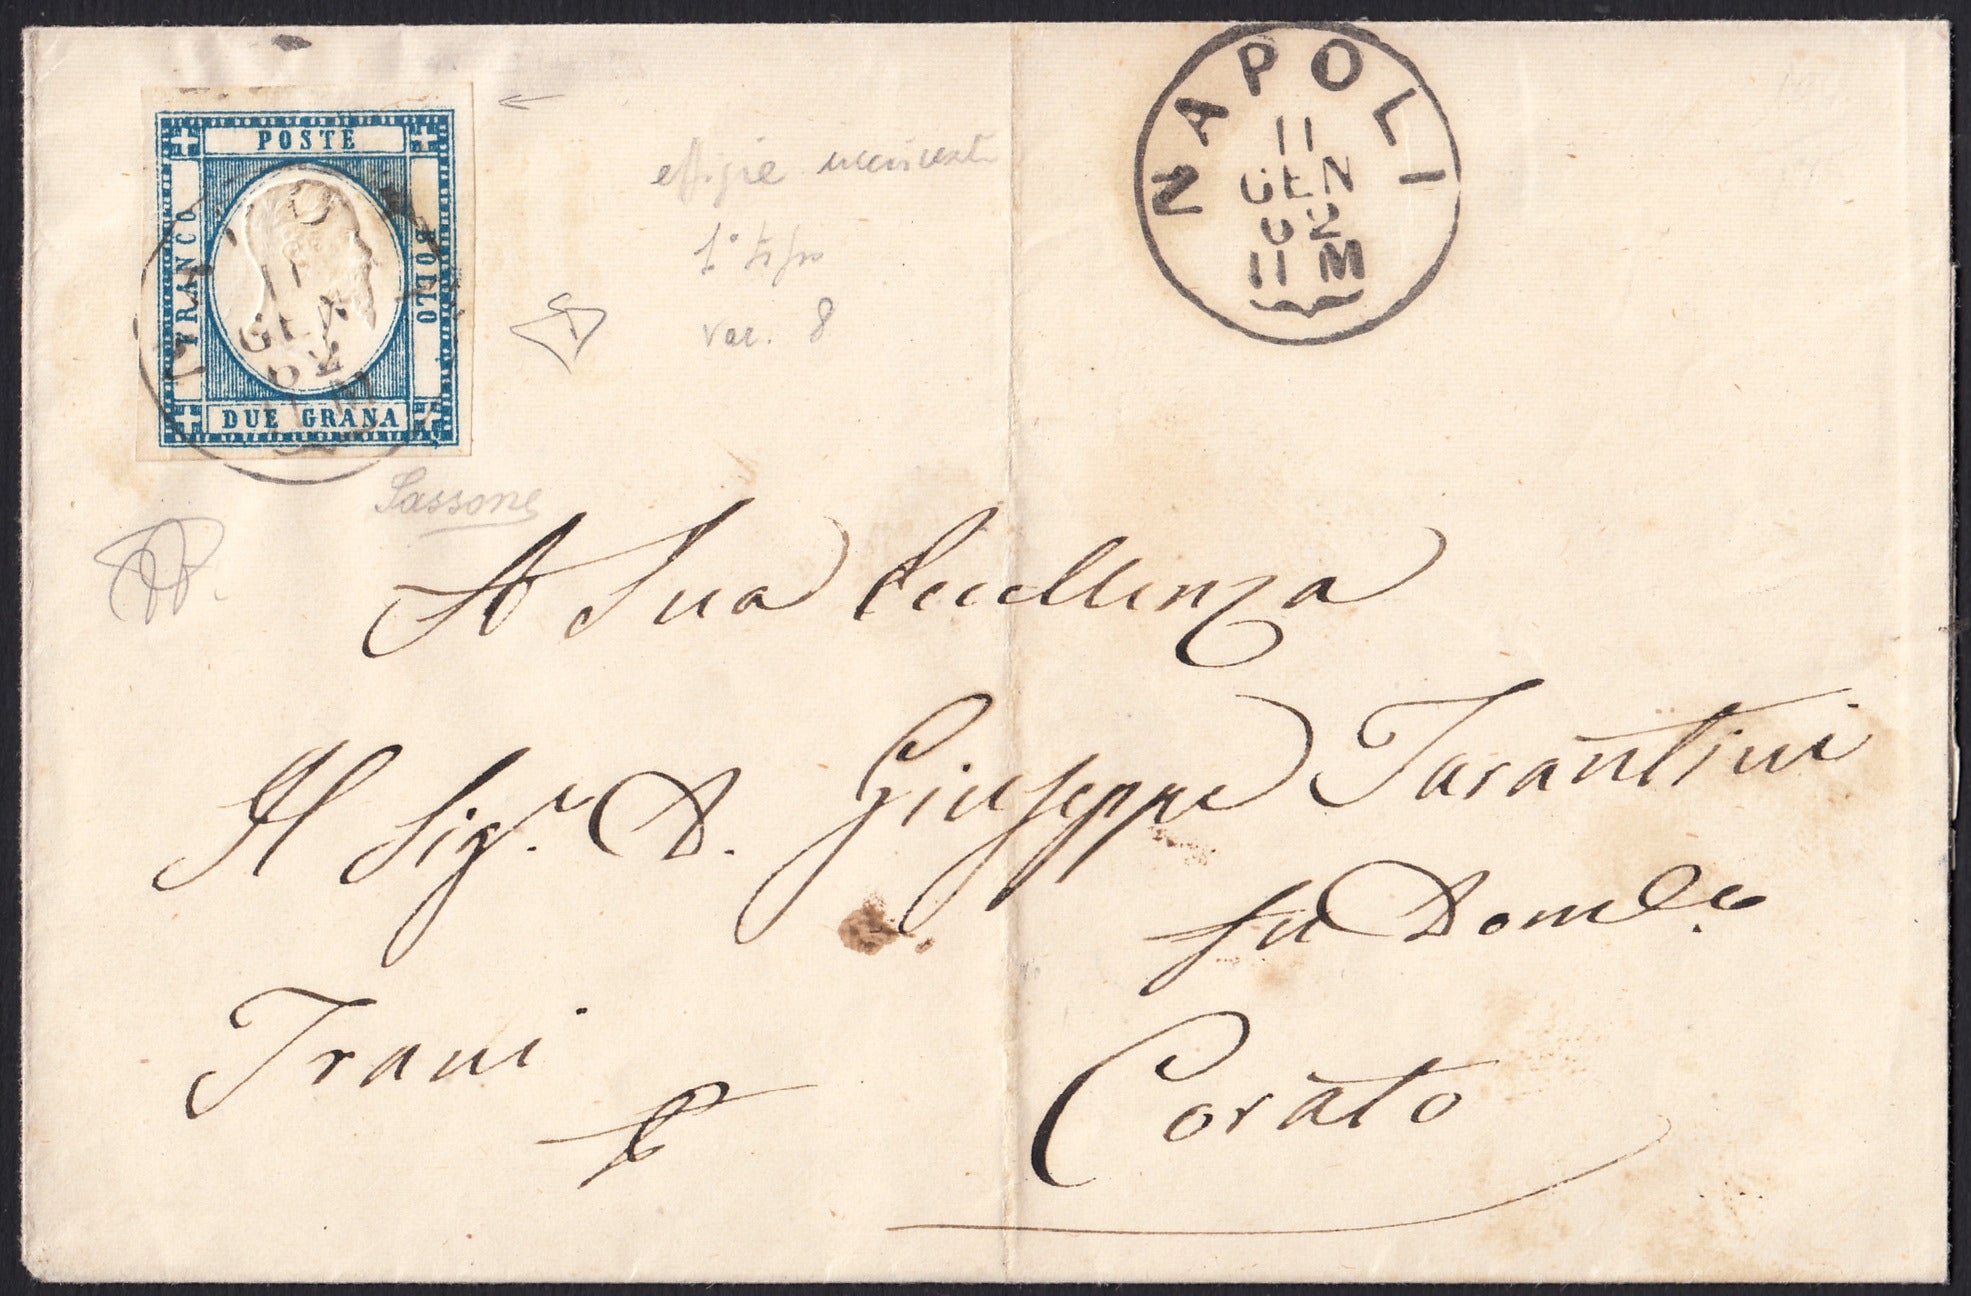 POSTE
FRANCO
BOLLO
DUE GRANA
NAPOLI
11
GEN
62
11 M
effigie
1° tipo
var. 8
Sassone
A Sua Eccellenza
Il Sigr. D. Giuseppe Tarantini
fu Domco.
Trani
Corato